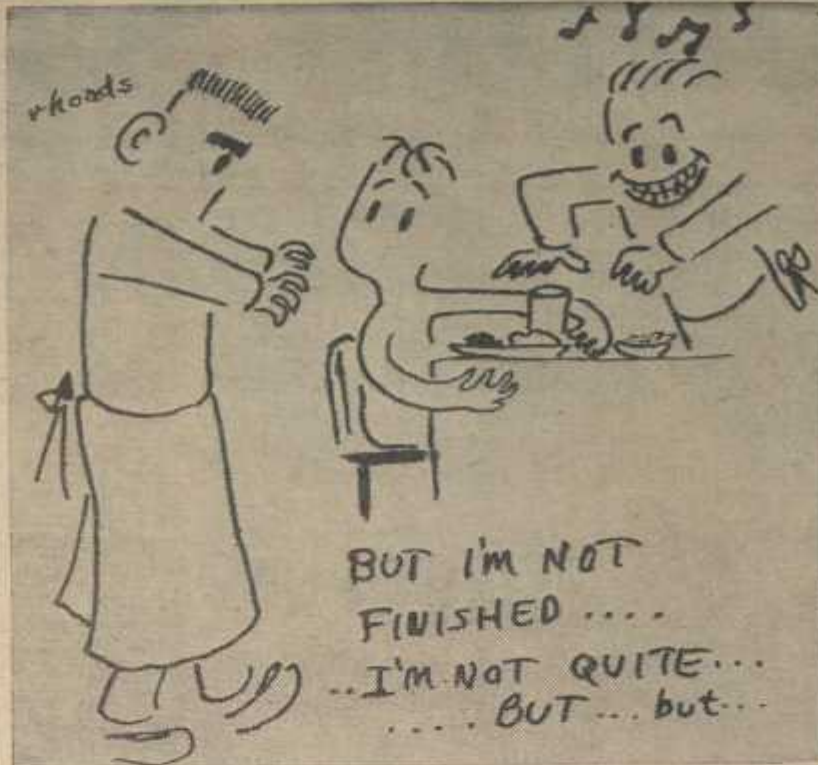 rhoads
BUT I'M NOT
FINISHED ....
..I'M NOT QUITE...
.... BUT... but...